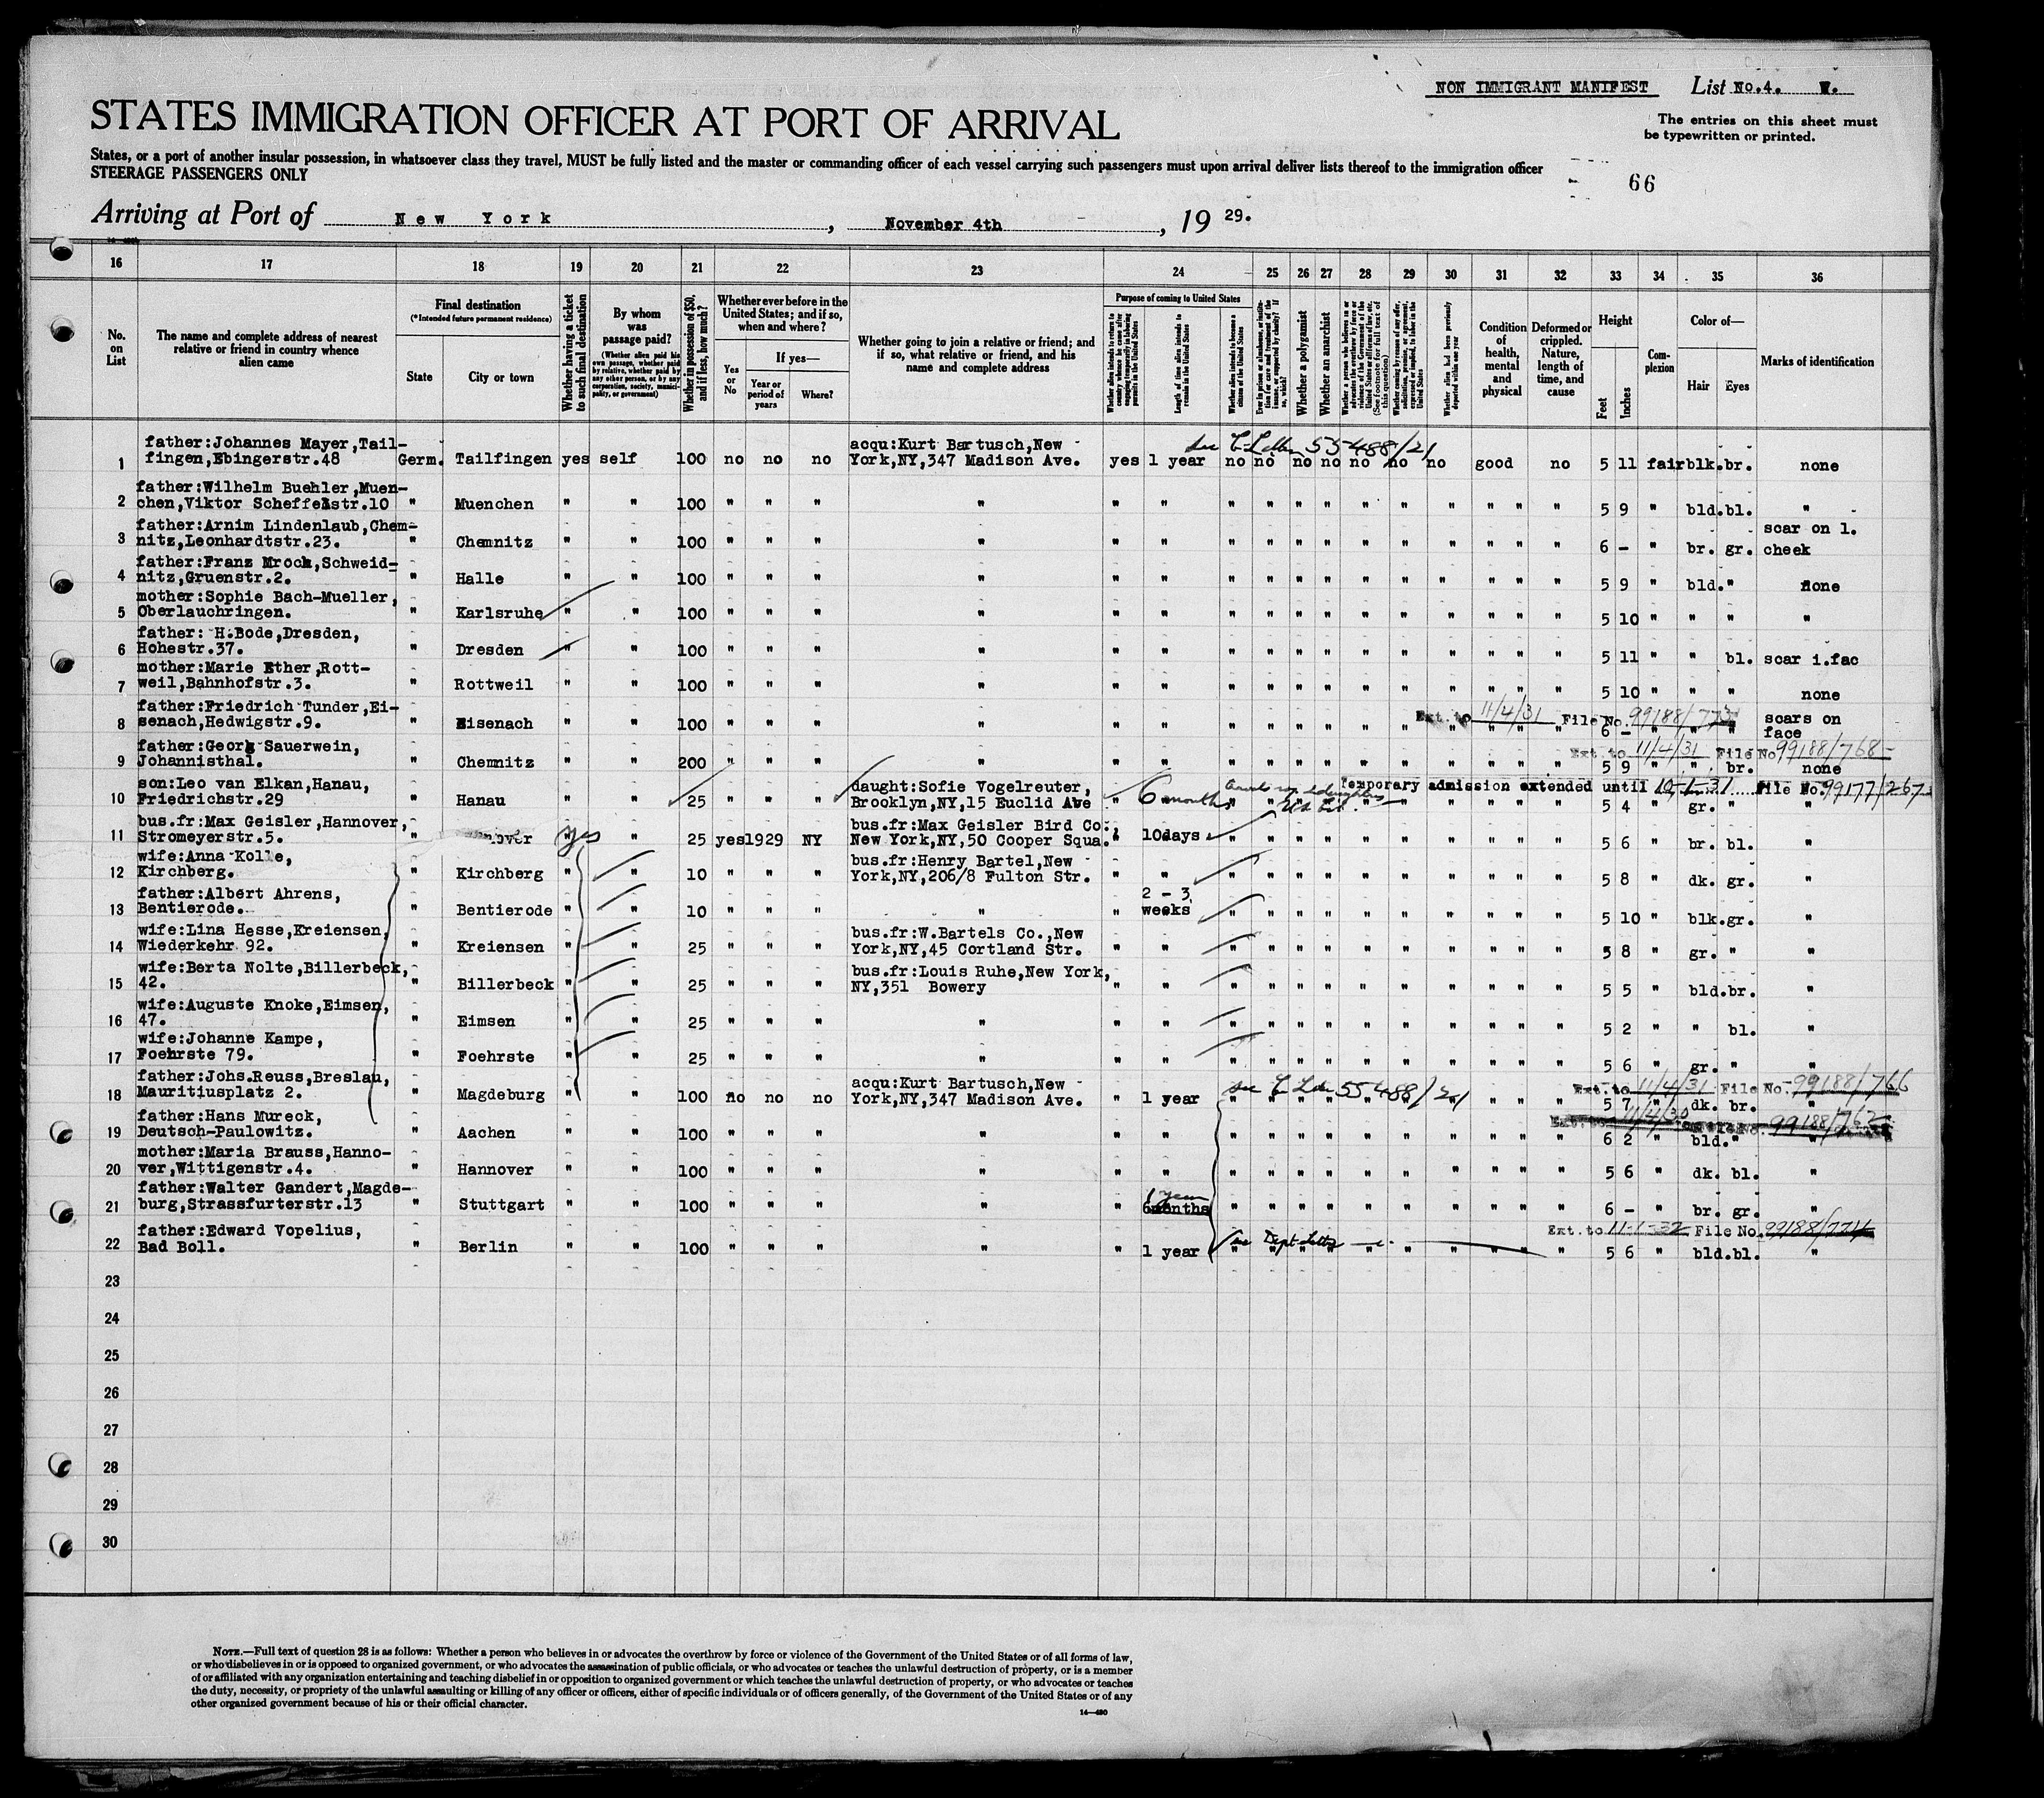 NON IMMIGRANT MANIFEST List No.4. W.
STATES IMMIGRATION OFFICER AT PORT OF ARRIVAL
The entries on this sheet must
be typewritten or printed.
States, or a port of another insular possession, in whatsoever class they travel, MUST be fully listed and the master or commanding officer of each vessel carrying such passengers must upon arrival deliver lists thereof to the immigration officer
STEERAGE PASSENGERS ONLY
66
Arriving at Port of New York, November 4th, 19 29.
16 17 18 19 20 21 22 23 24 25 26 27 28 29 30 31 32 33 34 35 36
No. on List
The name and complete address of nearest relative or friend in country whence alien came
Final destination
(*Intended future permanent residence)
State
City or town
Whether having a ticket to such final destination
By whom was passage paid?
(Whether alien paid his own passage, whether paid by relative, whether paid by any other person, or by any corporation, society, municipality, or government)
Whether in possession of $50, and if less, how much?
Whether ever before in the United States; and if so, when and where?
Yes or No
If yes—
Year or period of years
Where?
Whether going to join a relative or friend; and if so, what relative or friend, and his name and complete address
Purpose of coming to United States
Length of time alien intends to remain in the United States
Whether alien intends to become a citizen of the United States
Whether a polygamist
Whether an anarchist
Whether alien had been previously deported within one year
Condition of health, mental and physical
Deformed or crippled. Nature, length of time, and cause
Height
Feet
Inches
Complexion
Color of—
Hair
Eyes
Marks of identification
see 55488/21
1 father:Johannes Mayer,Tail-
fingen,Ebingerstr.48 Germ. Tailfingen yes self 100 no no no acqu:Kurt Bartusch,New
York,NY,347 Madison Ave. yes 1 year no no no no no no no good no 5 11 fair blk. br. none
2 father:Wilhelm Buehler,Muen-
chen,Viktor Scheffelstr.10 " Muenchen " " 100 " " " " " " " " " " " " " " " " 5 9 " bld. bl. "
3 father:Arnim Lindenlaub,Chem-
nitz,Leonhardtstr.23. " Chemnitz " " 100 " " " " " " " " " " " " " " " " 6 - " br. gr. scar on l.
cheek
4 father:Franz Mrock,Schweid-
nitz,Gruenstr.2. " Halle " " 100 " " " " " " " " " " " " " " " " 5 9 " bld. " none
5 mother:Sophie Bach-Mueller,
Oberlauchringen. " Karlsruhe " " 100 " " " " " " " " " " " " " " " " 5 10 " " " "
6 father: H.Bode,Dresden,
Hohestr.37. " Dresden " " 100 " " " " " " " " " " " " " " " " 5 11 " " bl. scar i.fac
7 mother:Marie Ether,Rott-
weil,Bahnhofstr.3. " Rottweil " " 100 " " " " " " " " " " " " " " " " 5 10 " " " none
Ext. to 11/4/31 File No. 99188/773
8 father:Friedrich Tunder,Ei-
senach,Hedwigstr.9. " Eisenach " " 100 " " " " " " " " " " " " " " " " 6 - " " " scars on
face
Ext. to 11/4/31 File No 99188/768
9 father:Georg Sauerwein,
Johannisthal. " Chemnitz " " 200 " " " " " " " " " " " " " " " " 5 9 " " br. none
Temporary admission extended until 10-1-31 File No. 99177/267
10 son:Leo van Elkan,Hanau,
Friedrichstr.29 " Hanau " 25 " " " daught:Sofie Vogelreuter,
Brooklyn,NY,15 Euclid Ave " 6 months " " " " " " " " " " 5 4 " gr. " "
11 bus.fr:Max Geisler,Hannover,
Stromeyerstr.5. " yes " 25 yes 1929 NY bus.fr:Max Geisler Bird Co.,
New York,NY,50 Cooper Squa. " 10days " " " " " " " " " " 5 6 " br. bl. "
12 wife:Anna Kolle,
Kirchberg. " Kirchberg " " 10 " " " bus.fr:Henry Bartel,New
York,NY,206/8 Fulton Str. " " " " " " " " " " " " 5 8 " dk. gr. "
13 father:Albert Ahrens,
Bentierode. " Bentierode " " 10 " " " " " 2 - 3
weeks " " " " " " " " " " 5 10 " blk. gr. "
14 wife:Lina Hesse,Kreiensen,
Wiederkehr 92. " Kreiensen " " 25 " " " bus.fr:W.Bartels Co.,New
York,NY,45 Cortland Str. " " " " " " " " " " " " 5 8 " gr. " "
15 wife:Berta Nolte,Billerbeck,
42. " Billerbeck " " 25 " " " bus.fr:Louis Ruhe,New York,
NY,351 Bowery " " " " " " " " " " " " 5 5 " bld. br. "
16 wife:Auguste Knoke,Eimsen,
47. " Eimsen " " 25 " " " " " " " " " " " " " " " " 5 2 " " bl. "
17 wife:Johanne Kampe,
Foehrste 79. " Foehrste " " 25 " " " " " " " " " " " " " " " " 5 6 " gr. " "
see 55488/21 Ext. to 11/4/31 File No. 99188/766
18 father:Johs.Reuss,Breslau,
Mauritiusplatz 2. " Magdeburg " " 100 no no no acqu:Kurt Bartusch,New
York,NY,347 Madison Ave. " 1 year " " " " " " " " " " 5 7 " dk. br. "
Ext. to 11/4/30 File No. 99188/762
19 father:Hans Mureck,
Deutsch-Paulowitz. " Aachen " " 100 " " " " " " " " " " " " " " " " 6 2 " bld. " "
20 mother:Maria Brauss,Hanno-
ver,Wittigenstr.4. " Hannover " " 100 " " " " " " " " " " " " " " " " 5 6 " dk. bl. "
21 father:Walter Gandert,Magde-
burg,Strassfurterstr.13 " Stuttgart " " 100 " " " " " 1 year
6months " " " " " " " " " " 6 - " br. gr. "
Ext. to 11-1-32 File No. 99188/774
22 father:Edward Vopelius,
Bad Boll. " Berlin " " 100 " " " " " 1 year see Dept letter " " " " " " " " " 5 6 " bld. bl. "
23
24
25
26
27
28
29
30
NOTE.—Full text of question 28 is as follows: Whether a person who believes in or advocates the overthrow by force or violence of the Government of the United States or of all forms of law,
or who disbelieves in or is opposed to organized government, or who advocates the assassination of public officials, or who advocates or teaches the unlawful destruction of property, or is a member
of or affiliated with any organization entertaining and teaching disbelief in or opposition to organized government or which teaches the unlawful destruction of property, or who advocates or teaches
the duty, necessity, or propriety of the unlawful assaulting or killing of any officer or officers, either of specific individuals or of officers generally, of the Government of the United States or of any
other organized government because of his or their official character.
14—480